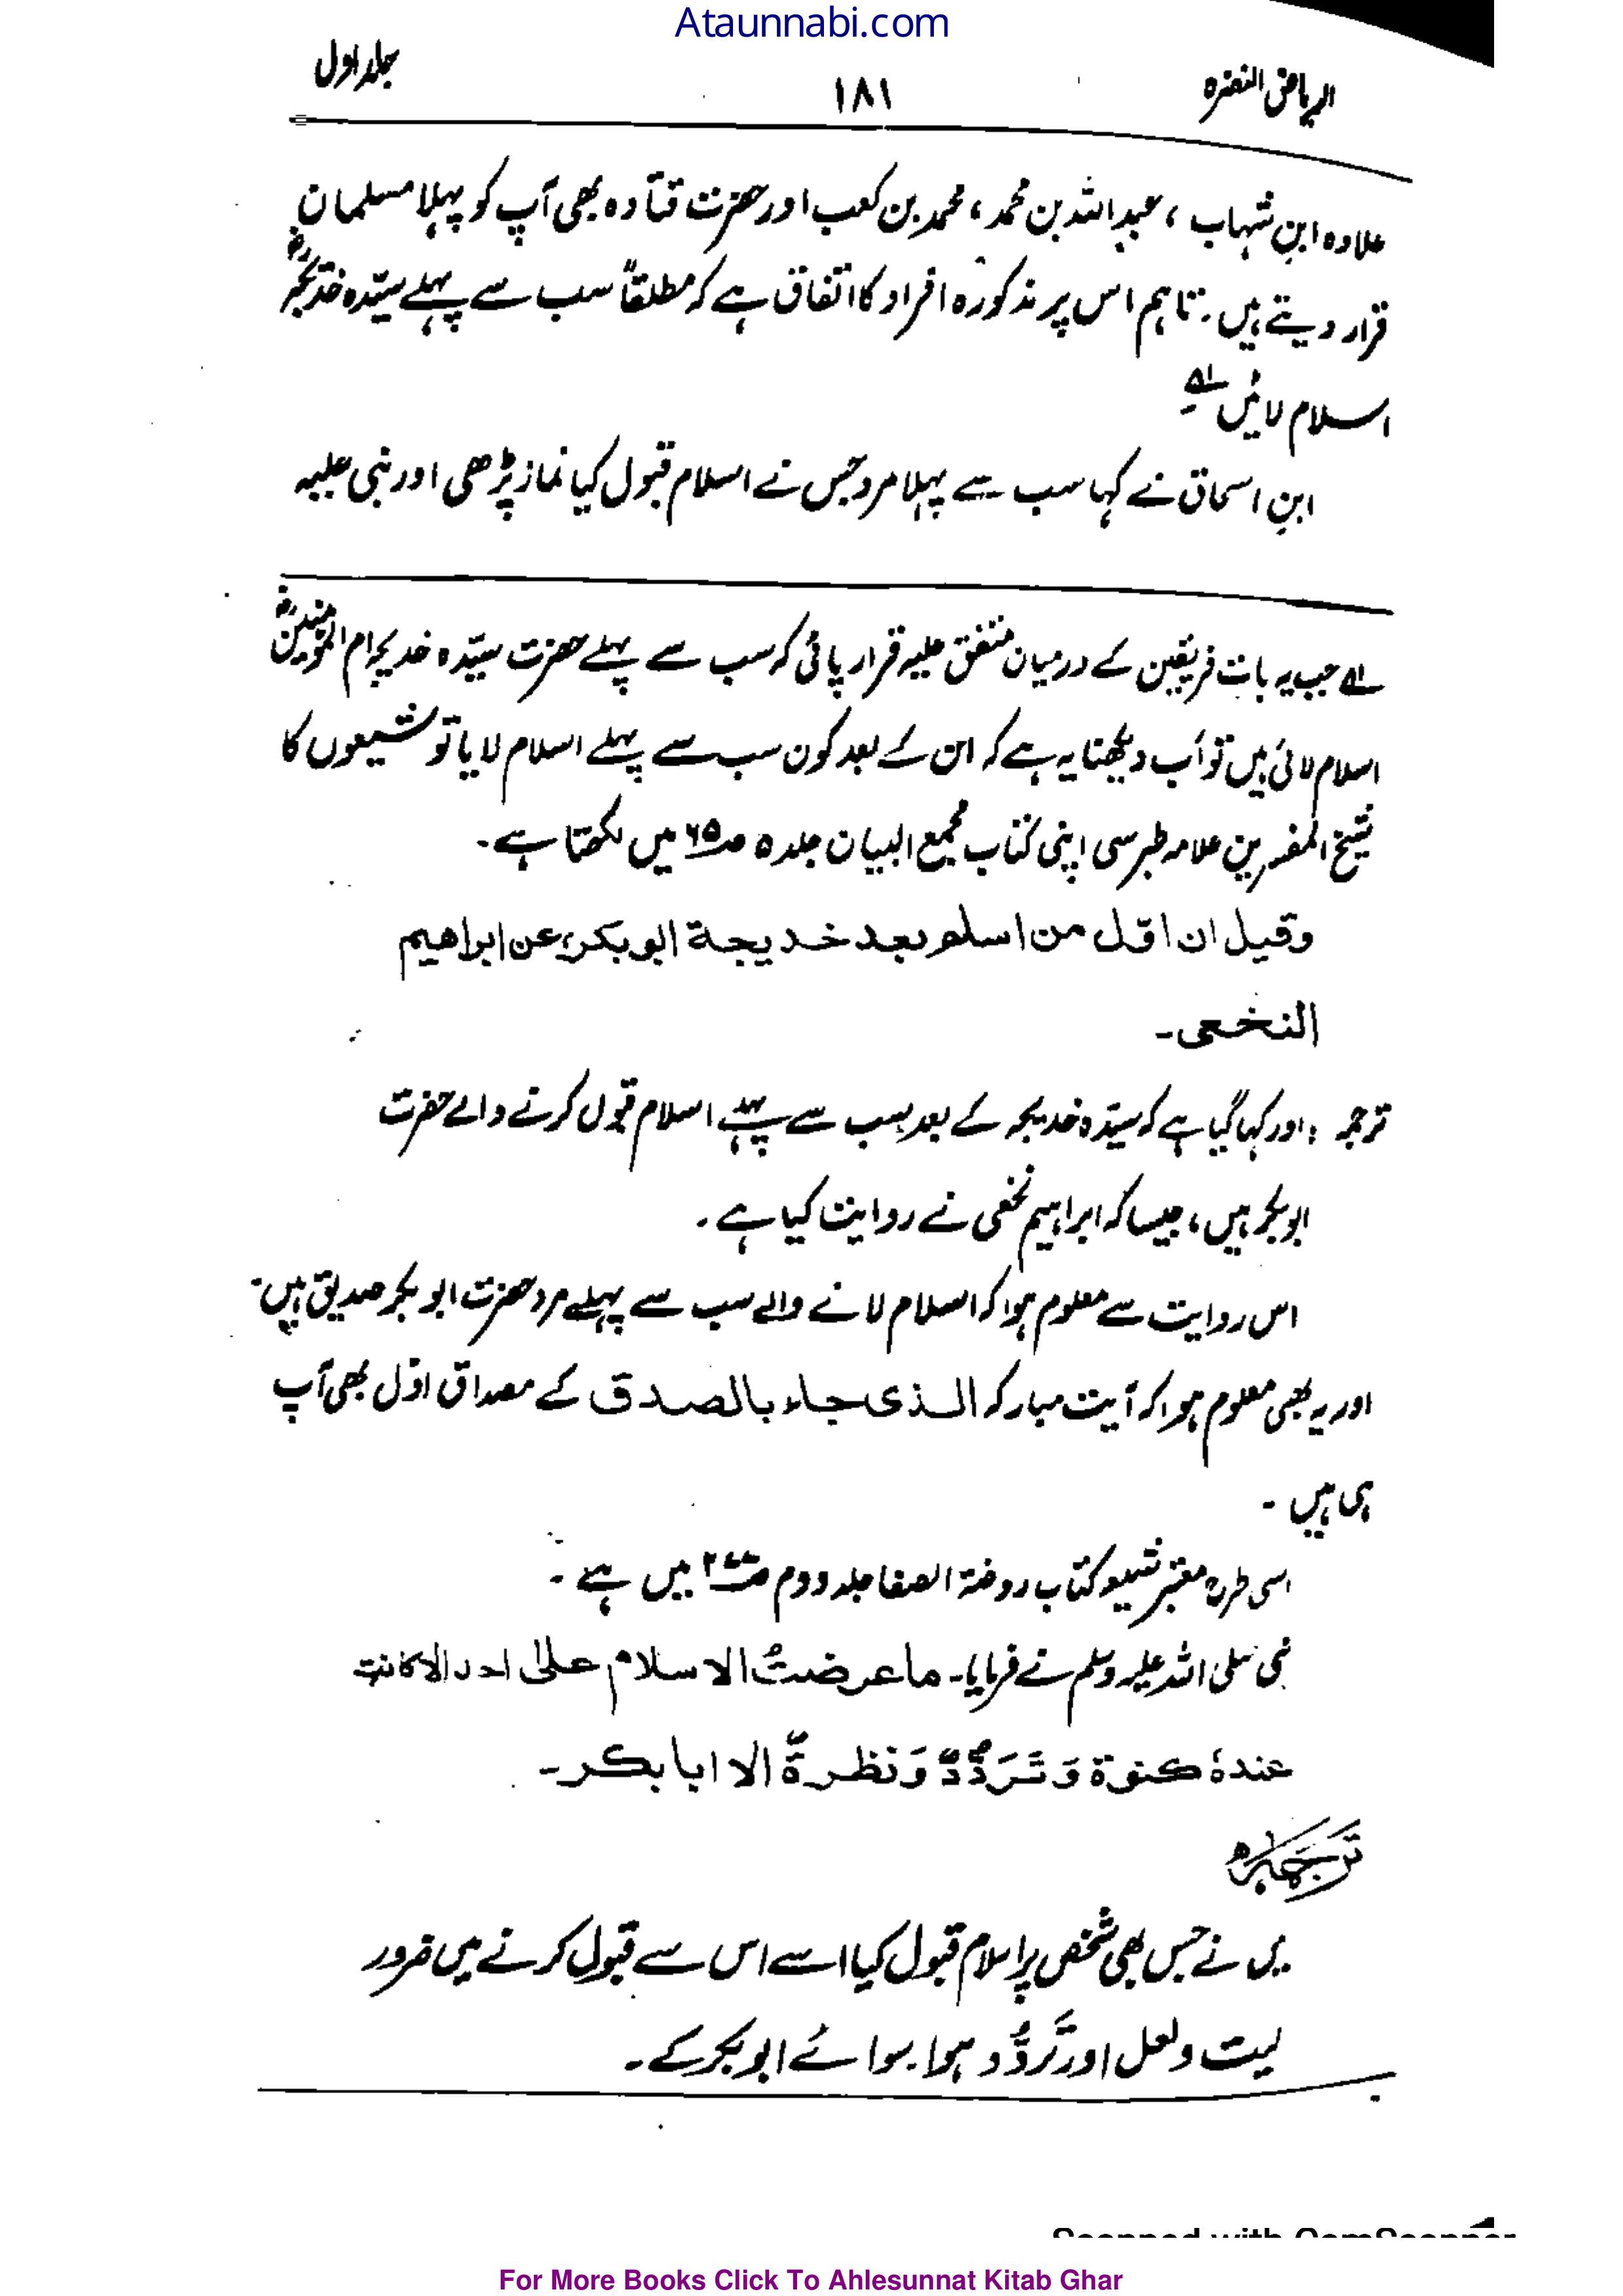 Ataunnabi.com
الریاض النضرہ ۱۸۱ جلد اول
علاوہ ابنِ شہاب ، عبداللہ بن محمد ، محمد بن کعب اور حضرت قتادہ بھی آپ کو پہلا مسلمان
قرار دیتے ہیں۔ تاہم اس پر مذکورہ افراد کا اتفاق ہے کہ مطلقاً سب سے پہلے سیّدہ خدیجہؓ
اسلام لائیں لے
ابنِ اسحاق نے کہا سب سے پہلا مرد جس نے اسلام قبول کیا نماز پڑھی اور نبی علیہ
لے جب یہ بات فریقین کے درمیان متفق علیہ قرار پائی کہ سب سے پہلے حضرت سیّدہ خدیجہ ام المومنینؓ
اسلام لائی ہیں تو اَب دیکھنا یہ ہے کہ ان کے بعد کون سب سے پہلے اسلام لایا تو شیعوں کا
شیخ المفسرین علامہ طبرسی اپنی کتاب مجمع البیان جلد ۵ صـ۶۵ میں لکھتا ہے۔
وقیل ان اوّل من اسلم بعد خدیجة ابوبکر، عن ابراهیم
النخعی۔
ترجمہ : اور کہا گیا ہے کہ سیّدہ خدیجہ کے بعد سب سے پہلے اسلام قبول کرنے والے حضرت
ابوبکر ہیں ، جیسا کہ ابراہیم نخعی نے روایت کیا ہے۔
اس روایت سے معلوم ہوا کہ اسلام لانے والے سب سے پہلے مرد حضرت ابوبکر صدیق ہیں۔
اور یہ بھی معلوم ہوا کہ آیت مبارکہ الذی جاء بالصدق کے مصداق اوّل بھی آپ
ہی ہیں ۔
اسی طرح معتبر شیعہ کتاب روضۃ الصفا جلد دوم میں ہے ۔
نبی صلی اللہ علیہ وسلم نے فرمایا۔ ما عرضتُ الاسلام علیٰ احد الا کانت
عندہٗ کنوۃ وَ تَرَدُّدٌ وَ نظرۃٌ الا ابابکر۔
تَرجَمَہ
میں نے جس بھی شخص پر اسلام قبول کیا اسے اس سے قبول کرنے میں ضرور
لیت ولعل اور تَردُّد ہوا۔ سوائے ابوبکر کے۔
Scanned with CamScanner
For More Books Click To Ahlesunnat Kitab Ghar